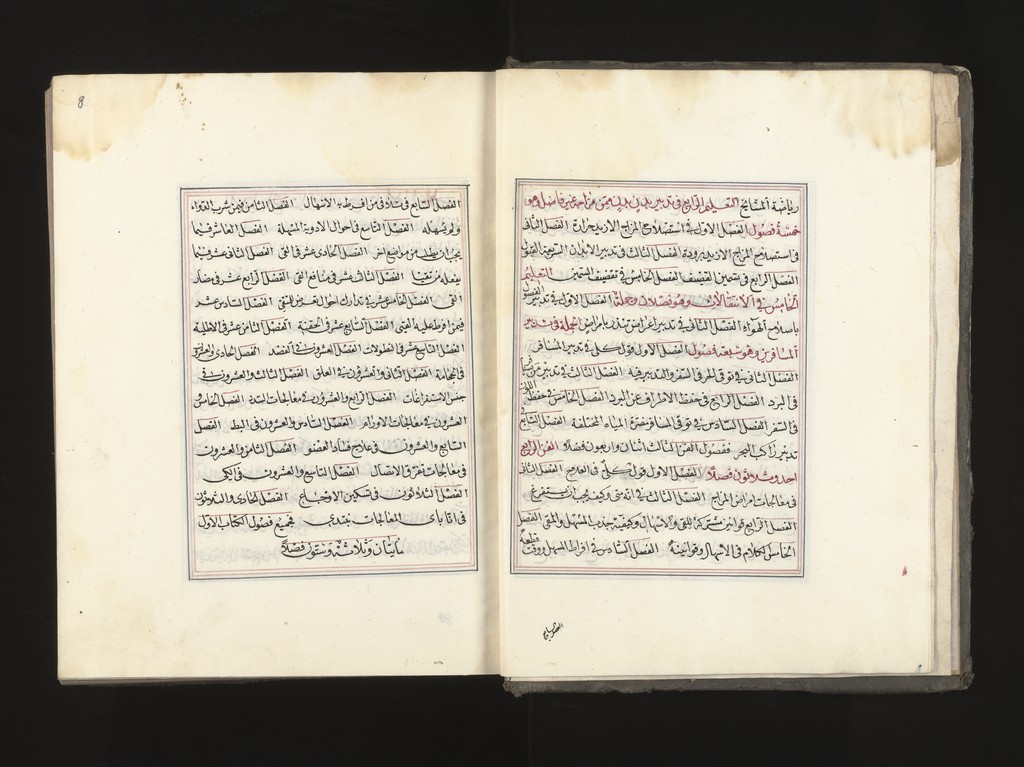 رياضة المشايخ التعليم الرابع في تدبير بدن من مزاجه غير فاضل وهو
خمسة فصول الفصل الاول في استصلاح المزاج الازيد حرارة الفصل الثاني
في استصلاح المزاج الازيد برودة الفصل الثالث في تدبير الابدان السريعة القبول
الفصل الرابع في تسمين القضيف الفصل الخامس في تقضيف السمين التعليم
الخامس في الانتقالات وهو فصلان وجملة الفصل الاول في تدبير الفصول
باصلاح الهواء الفصل الثاني في تدبير اعراض تنذر بامراض جملة في تدبير
المسافرين وهو سبعة فصول الفصل الاول قول كلي في تدبير المسافر
الفصل الثاني في توقي الحر في السفر والتدبير فيه الفصل الثالث في تدبير من يسافر
في البرد الفصل الرابع في حفظ الاطراف عن البرد الفصل الخامس في حفظ اللون
في السفر الفصل السادس في توقي المسافر مضرة المياه المختلفة الفصل السابع في
تدبير راكب البحر ففصول الفن الثالث اثنان واربعون فصلا الفن الرابع
احد وثلاثون فصلا الفصل الاول قول كلي في العلاج الفصل الثاني
في معالجات امراض المزاج الفصل الثالث في انه متى وكيف يجب ان يستفرغ
الفصل الرابع قوانين مشتركة للقي والاسهال وكيفية جذب المسهل والمقي الفصل
الخامس الكلام في الاسهال وقوانينه الفصل السادس في افراط المسهل ووقت قطعه
الفصل السابع
8
الفصل السابع في تلافي من افرط به الاسهال الفصل الثامن فيمن شرب الدواء
ولم يسهله الفصل التاسع في احوال الادوية المسهلة الفصل العاشر فيما
يجب ان يطلب من مواضع اخر الفصل الحادي عشر في القي الفصل الثاني عشر فيما
يفعله من تقيا الفصل الثالث عشر في منافع القي الفصل الرابع عشر في مضار
القي الفصل الخامس عشر في تدارك احوال تعرض للمتقي الفصل السادس عشر
فيمن افرط عليه القي الفصل السابع عشر في الحقنة الفصل الثامن عشر في الاطلية
الفصل التاسع عشر في النطولات الفصل العشرون في الفصد الفصل الحادي والعشرون
في الحجامة الفصل الثاني والعشرون في العلق الفصل الثالث والعشرون في
حبس الاستفراغات الفصل الرابع والعشرون في معالجات السدد الفصل الخامس و
العشرون في معالجات الاورام الفصل السادس والعشرون في البط الفصل
السابع والعشرون في علاج فساد العضو الفصل الثامن والعشرون
في معالجات تفرق الاتصال الفصل التاسع والعشرون في الكي
الفصل الثلاثون في تسكين الاوجاع الفصل الحادي والثلاثون
في انا باي المعالجات نبتدي فجميع فصول الكتاب الاول
مايتان وثلاثة وستون فصلا